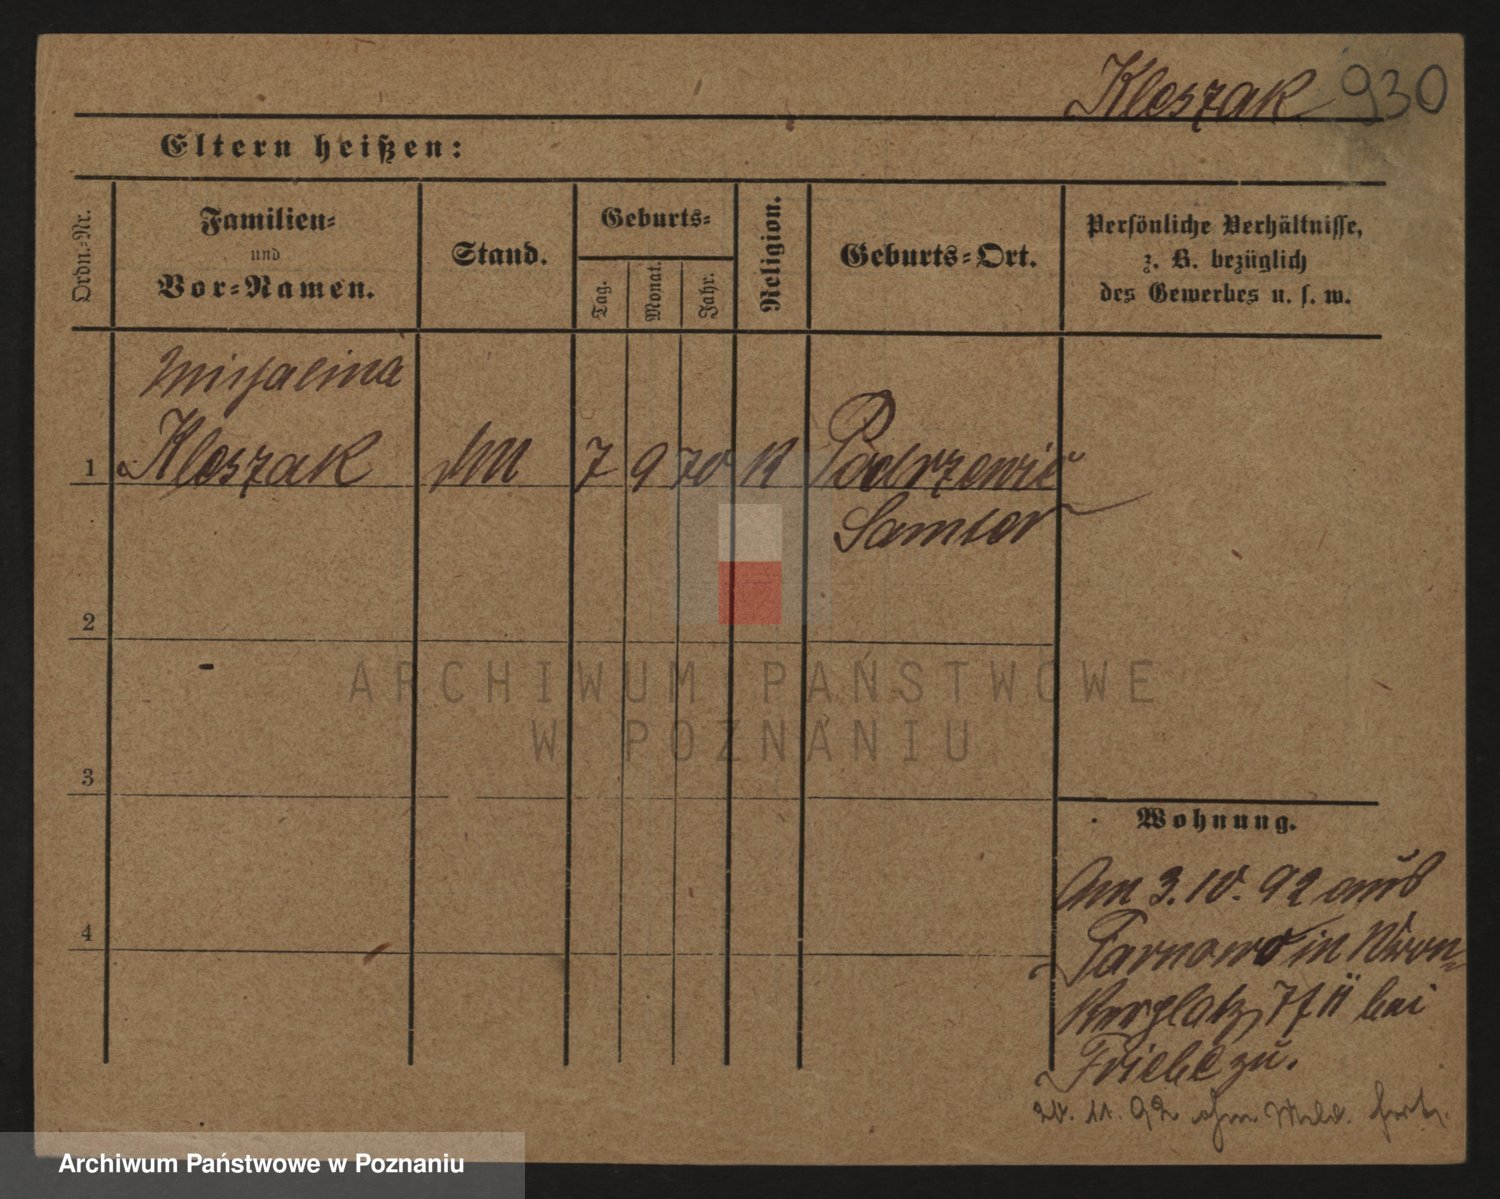 Kleszak 930
Eltern heißen:
Ordn.-Nr.
Familien-
und
Vor-Namen.
Stand.
Geburts-
Tag.
Monat.
Jahr.
Religion.
Geburts-Ort.
Persönliche Verhältnisse,
z. B. bezüglich
des Gewerbes u. s. w.
Michalina
1 Kleszak 7 9 70 K
Samter
2
3
4
ARCHIWUM PAŃSTWOWE
W POZNANIU
Wohnung.
Am 3. 10. 92 aus
Tarnowo in
7/II bei
Friebe zu.
20. 11. 92 ohne Meld. fort.
Archiwum Państwowe w Poznaniu